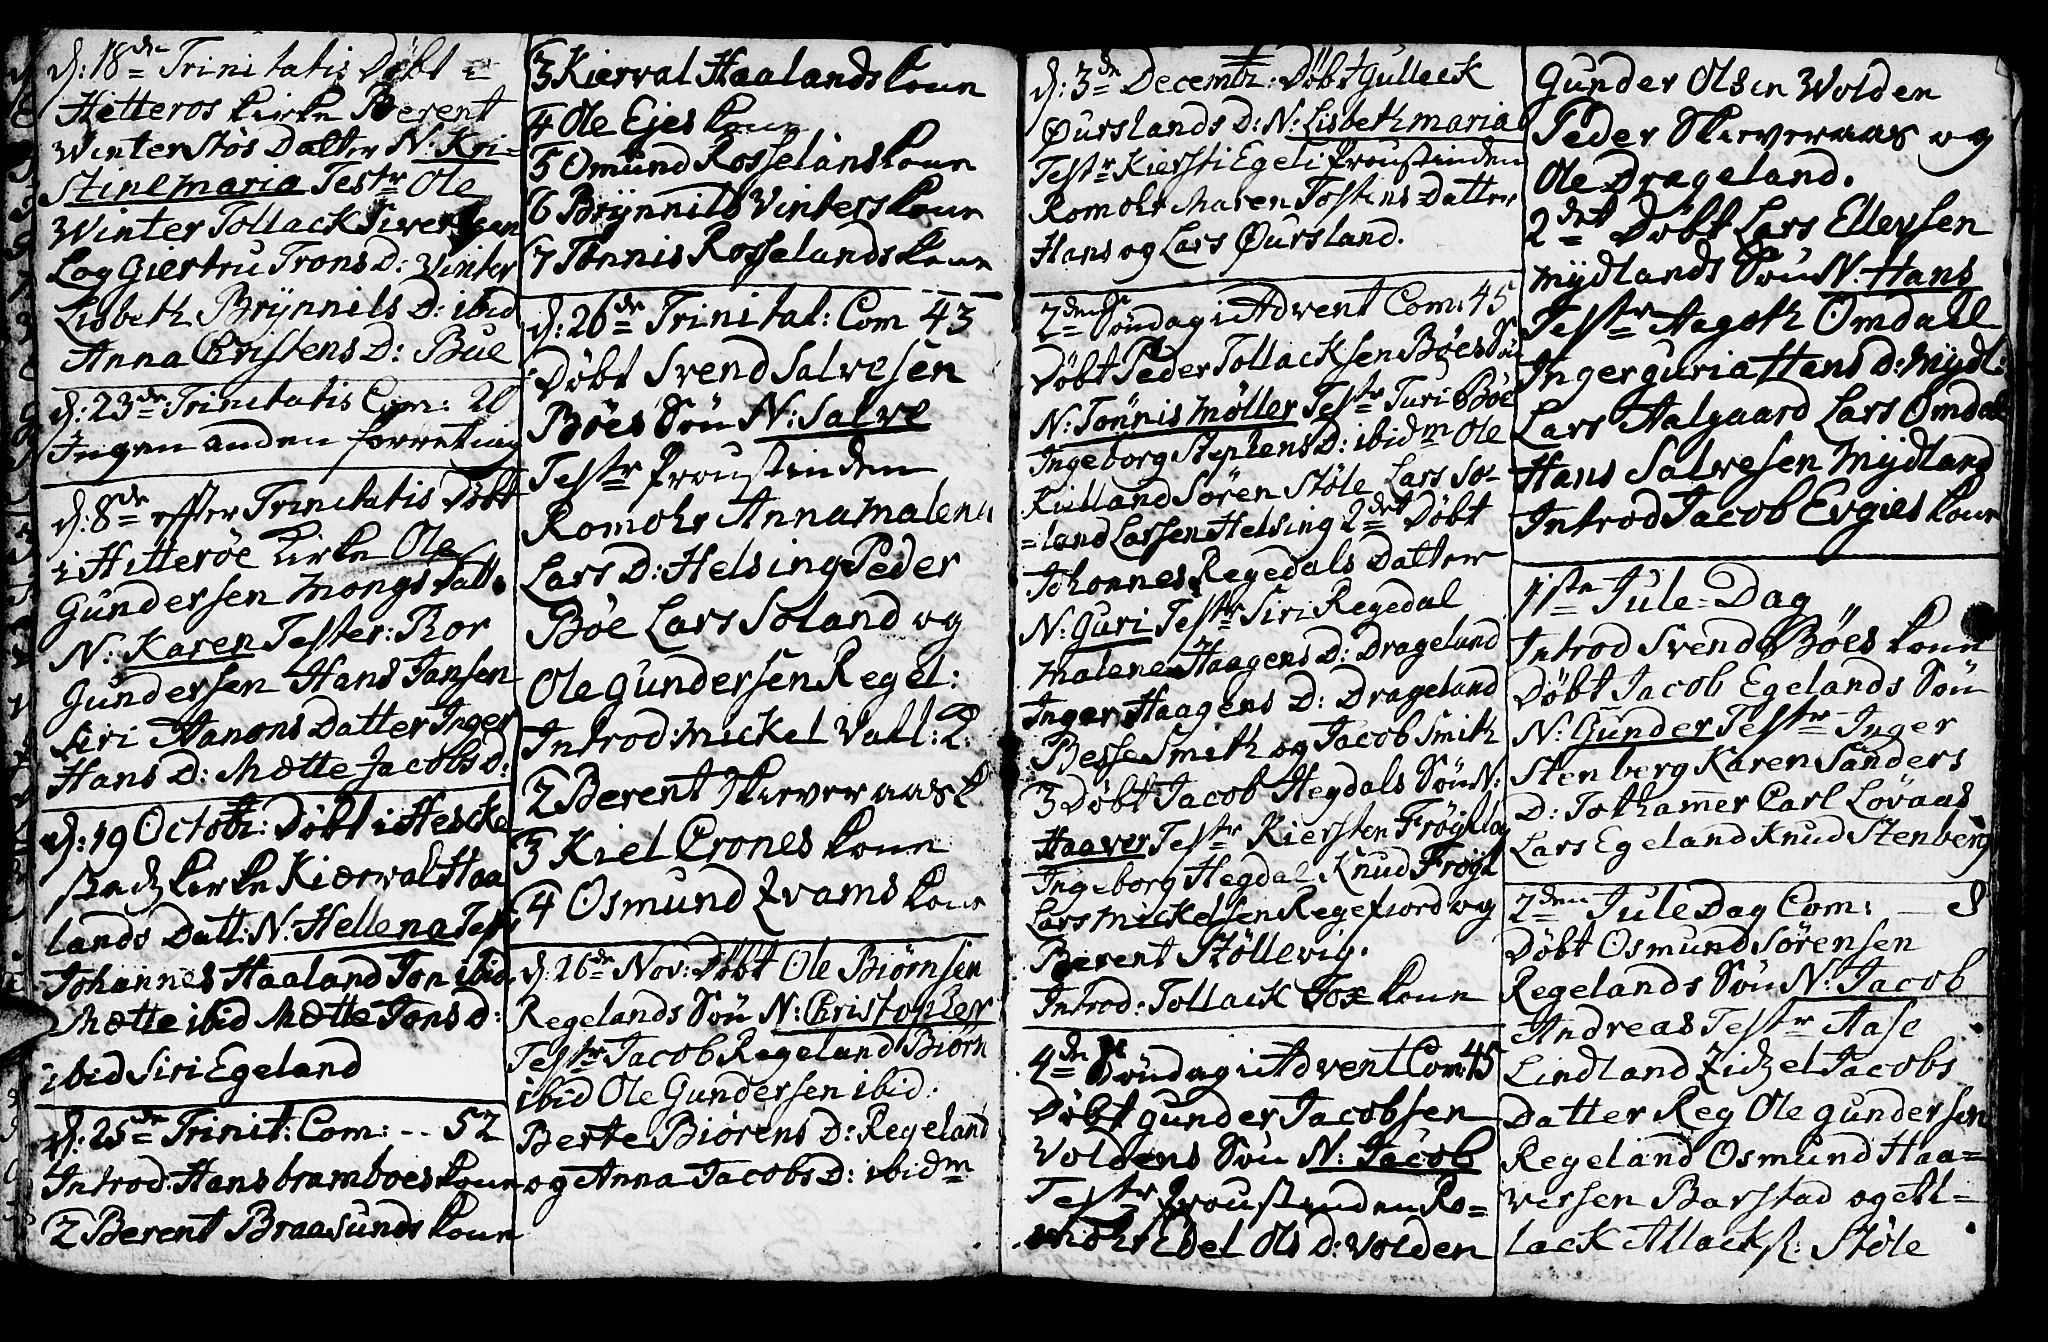 d: 18de Trinitatis Døbt i
Hetteros kirke Berent
Winterstøs Datter N: Kri-
stinemaria Testr Ole
Winter Tollack Siversen
Log Giertru Trons D: Vinter
Lisbeth Brÿnnils D: ibid
Anna Christens D: Bue
d: 23de Trinitatis Com: 20
Ingen anden forretning
d: 8de effter Trinitatis Døbt
i Hitterøe Kirke Ole
Gundersen mongs Datt.
N: Karen Tester: Bor
Gundersen Hans Jansen
Siri Hanons Datter Inger
Hans D: Mætte Jacobs D:
d: 19 Octobr: Døbt i Hescke
stadz kirke Kiærval Haa
lands Datt: N: Hellena Test
Johannes Haaland Jon ibid
Mætte ibid Mætte Jons D:
ibid Siri Egeland
d: 25de Trinit: Com: -- 52
Introd: Hans bramboes kone
2 Berent Braasunds kone
3 Kierval Haalands kone
4 Ole Ejes kone
5 Omund Rosselans kone
6 Brÿnnild Vinters kone
7 Tønnis Rosselands kone
d: 26de Trinitat: Com 43
Døbt Svend Salvesen
Bøes Søn N: Salve
Testr Proustinden
Romohr Anna Malena
Lars D: Helsing Peder
Bøe Lars Soland og
Ole gundersen Regel:
Introd: Mickel Vatl: 2:
2 Berent Skieveraas k
3 Kiel Crones kone
4 Osmund Qvams kone
d: 26de Nov: Døbt Ole Biørnsen
Regelands Søn N: Christopher
Testr Jacob Regeland Biørn
ibid Ole Gundersen ibid:
Berte Biørens D: Regeland
og Anna Jacobs D: ibidm
d: 3de Decembr: Døbt Gulleck
Øurslands D: N: Lisbeth maria
Testr Kiersti Egeli Proustinden
Romohr Maren Tostens Datter
Hans og Lars Øursland.
2den Søndag i Advent Com: 45
Døbt Peder Tollacksen Bøes Søn
N: Tønnis møller Testr Turi Bøe
Ingeborg Stephens D: ibidm Ole
Rulland Søren Støle Lars So-
=land Larsen Helsing 2det Døbt
Johonnes Regedals Datter
N: Guri Testr Siri Regedal
Malene Haagens D: Drageland
Inger Haagens D: Drageland
Besse Smith og Jacob Smith
3 Døbt Jacob Hegdals Søn N:
Haaver Testr Kiersten Frøytlog
Ingeborg Hegdal Knud Frøÿtl
Lars Mickelsen Regefiord og
Berent Støllevig.
Introd: Tollack Tox kone
4de Søndag i Advent Com: 45
Døbt gunder Jacobsen
Voldens Søn N: Jacob
Testr Proustinden Ro=
mohr Edel Ols D: Volden
Gunder Olsen Wolden
Peder Skieveraas og
Ole Drageland.
2det Døbt Lars Ellevsen
Mÿdlands Søn N: Hans
Testr Aagoth Omdall
Ingerguria Hans D: Mÿdl:
Lars Aalgaard Lars Omdal
Hans Salvesen Mÿdland
Introd Jacob Evgies kone
1ste Jule=Dag
Introd Svend Bøes kone
Døbt Jacob Egelands Søn
N: Gunder Testr Inger
Stenberg Karen Sanders
D: Jothammer Carl Løvaas
Lars Egeland Knud Stenberg
2den Jule Dag Com: - 8
Døbt Osmund Sørensen
Regelands Søn N: Jacob
Andreas Testr Aase
Lindland Zidzel Jacobs
Datter Reg Ole gundersen
Regeland Osmund Haa=
versen Barstad og etl=
lack Atlacks: Støle